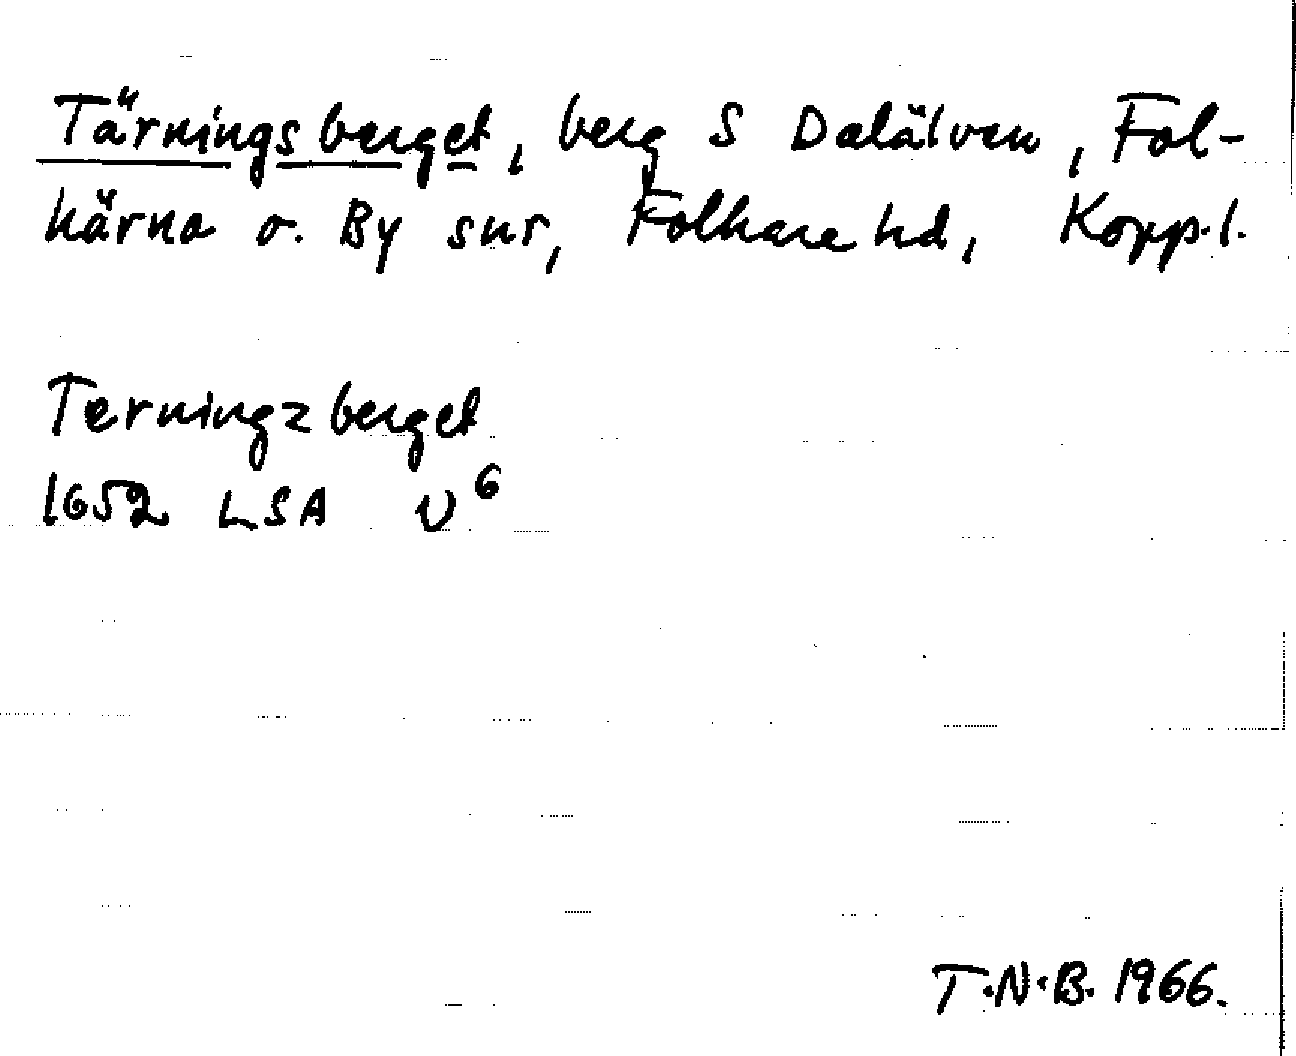 Tärningsberget, berg S Dalälven, Fol-
kärna o. By snr, Folkare hd, Kopp.l.
Terningzberget
1652 LSA U⁶
T.N.B. 1966.